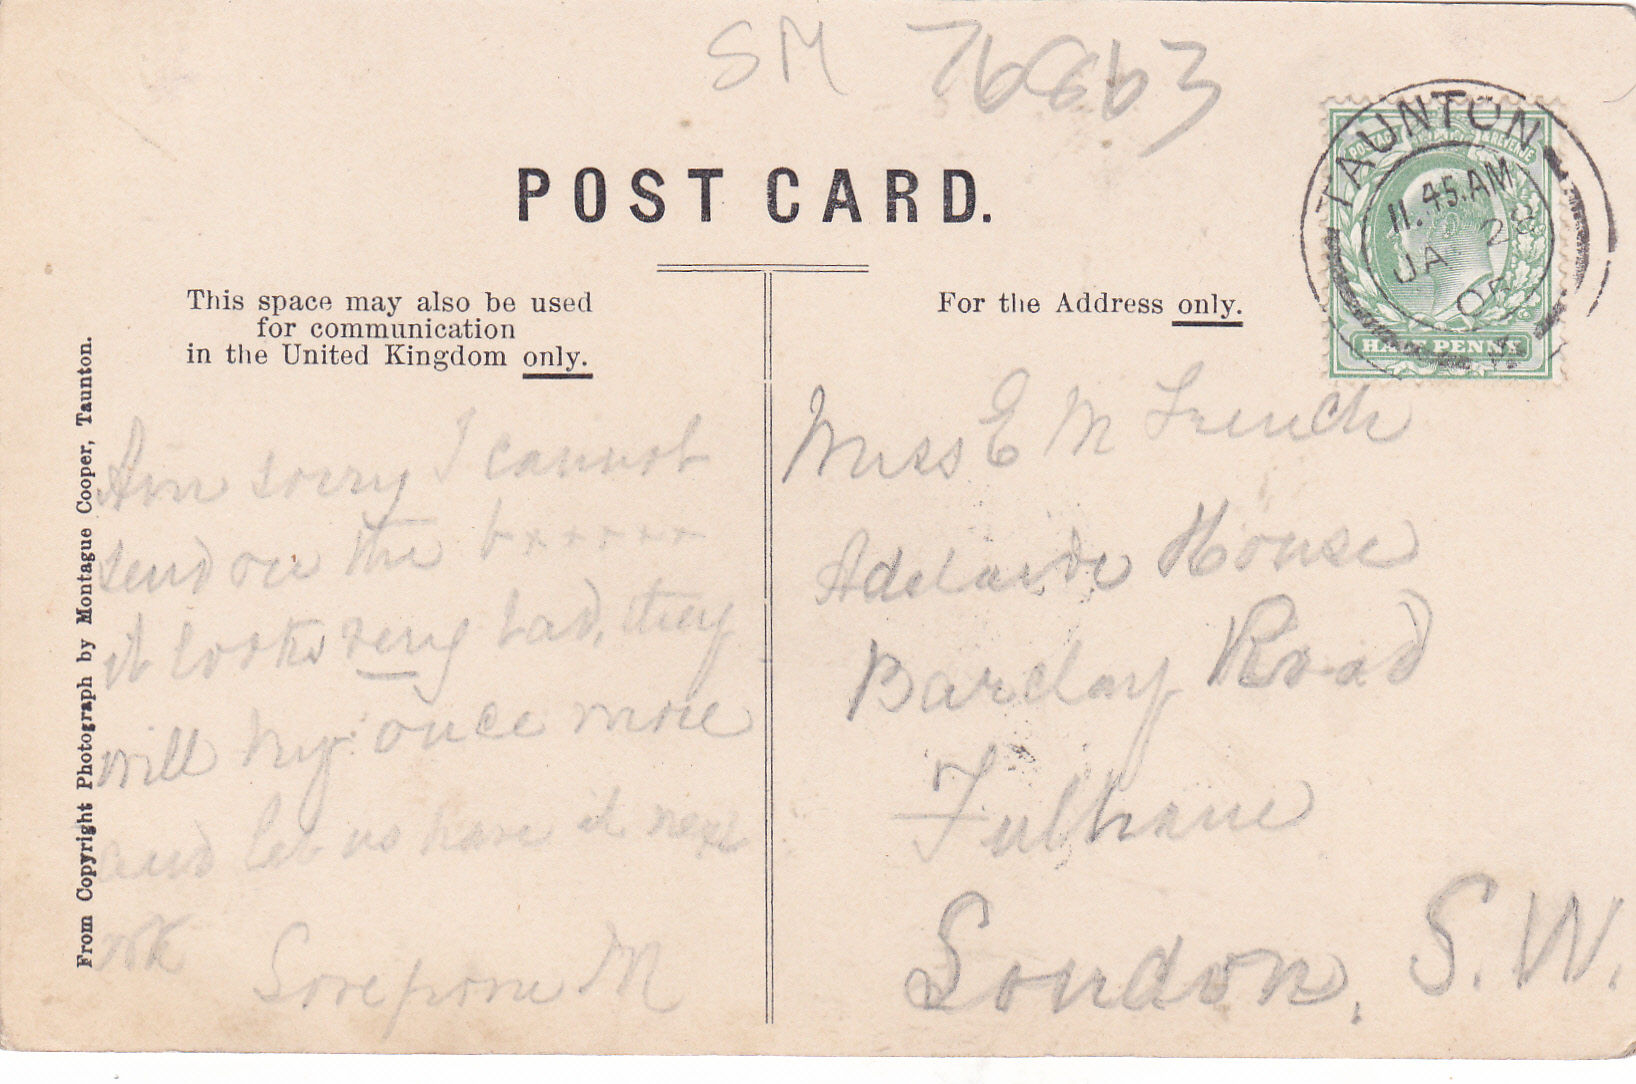 SM 76663
POST CARD.
This space may also be used
for communication
in the United Kingdom only.
For the Address only.
TAUNTON
11.45.AM
JA 28
05
POSTAGE & REVENUE
HALF PENNY
From Copyright Photograph by Montague Cooper, Taunton.
Am sorry I cannot
send on the b××××××
it looks very bad, they
will try once more
and let us have it next
wk
Love from M
Miss E M French
Adelaide House
Barclay Road
Fulham
London, S.W.